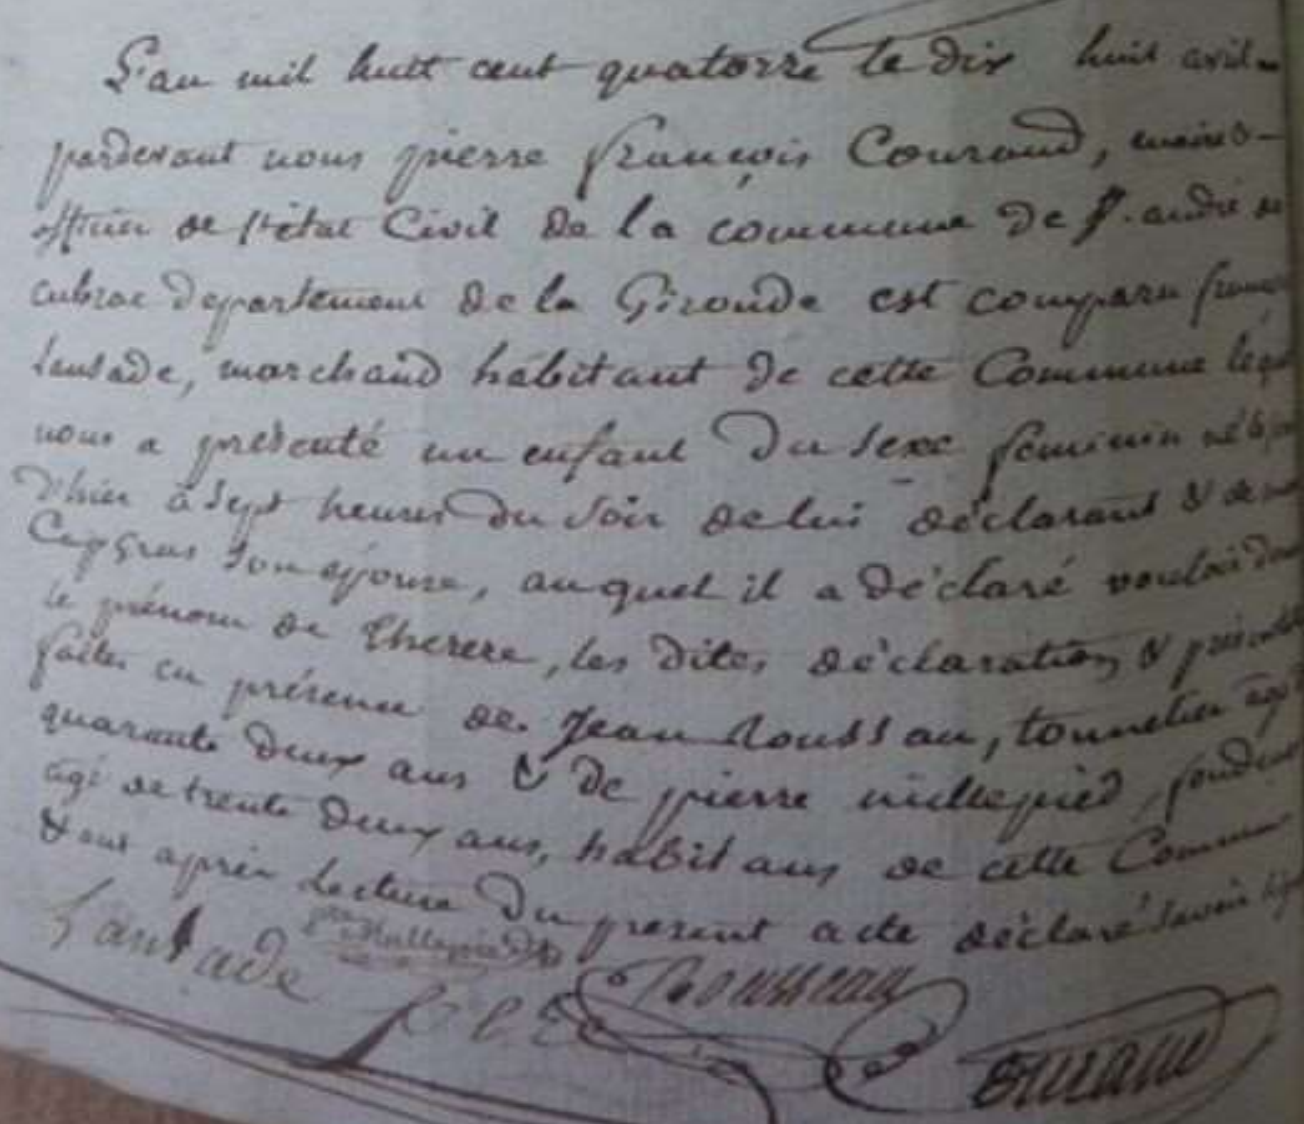 L'an mil huit cent quatorze le dix huit avril
pardevant nous pierre françois Couraud, maire &
officier de l'état Civil de la commune de St. andré de
cubzac departement de la Gironde est comparu
Lansade, marchand habitant de cette Commune
nous a présenté un enfant du sexe féminin né
d'hier à sept heures du soir de lui déclarant & de
Capgras son épouse, auquel il a déclaré vouloir
le prénom de therese, les dites déclaration &
faites en présence de Jean Roussau, tonnelier agé
quarante deux ans & de pierre millepied,
agé de trente deux ans, habitans de cette
& ont après Lecture du present acte déclaré savoir
Lansade Millepied Rousseau
Couraud